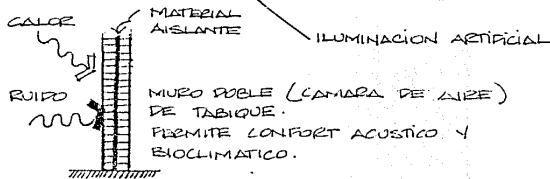 CALOR
MATERIAL
AISLANTE
ILUMINACION ARTIFICIAL
RUIDO
MURO DOBLE (CAMARA DE AIRE)
DE TABIQUE.
PERMITE CONFORT ACUSTICO Y
BIOCLIMATICO.